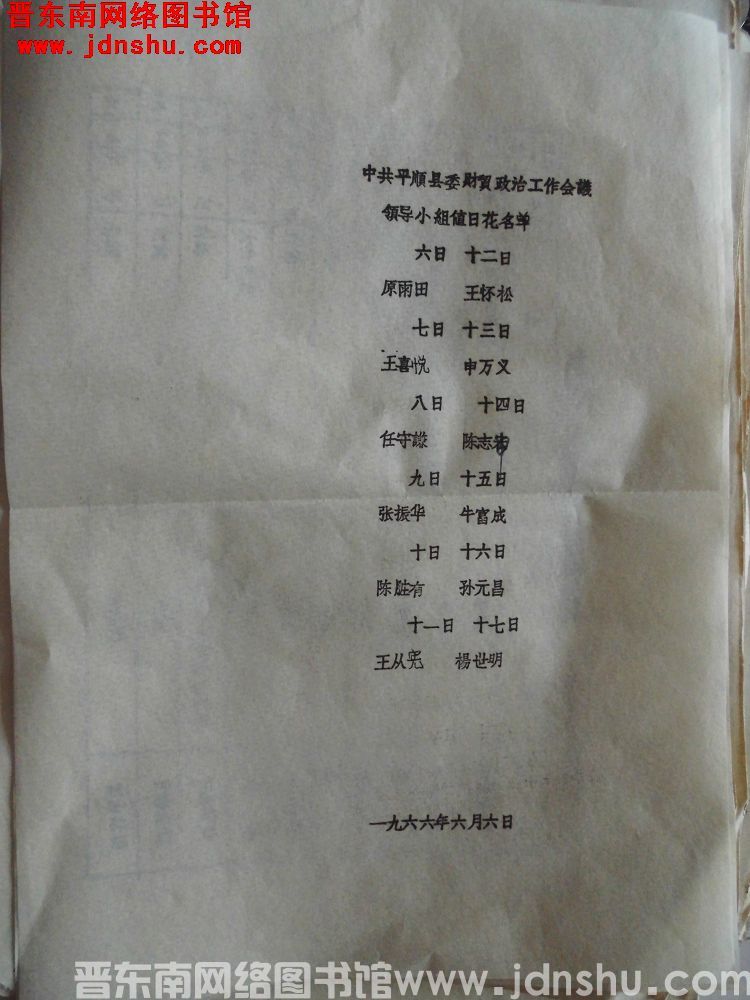 晋东南网络图书馆
www.jdnshu.com
中共平順县委財貿政治工作会議
領导小組值日花名单
六日 十二日
原雨田 王怀松
七日 十三日
王喜悦 申万义
八日 十四日
任守諒 陈志
九日 十五日
张振华 牛富成
十日 十六日
陈 有 孙元昌
十一日 十七日
王从宪 楊世明
一九六六年六月六日
晋东南网络图书馆www.jdnshu.com